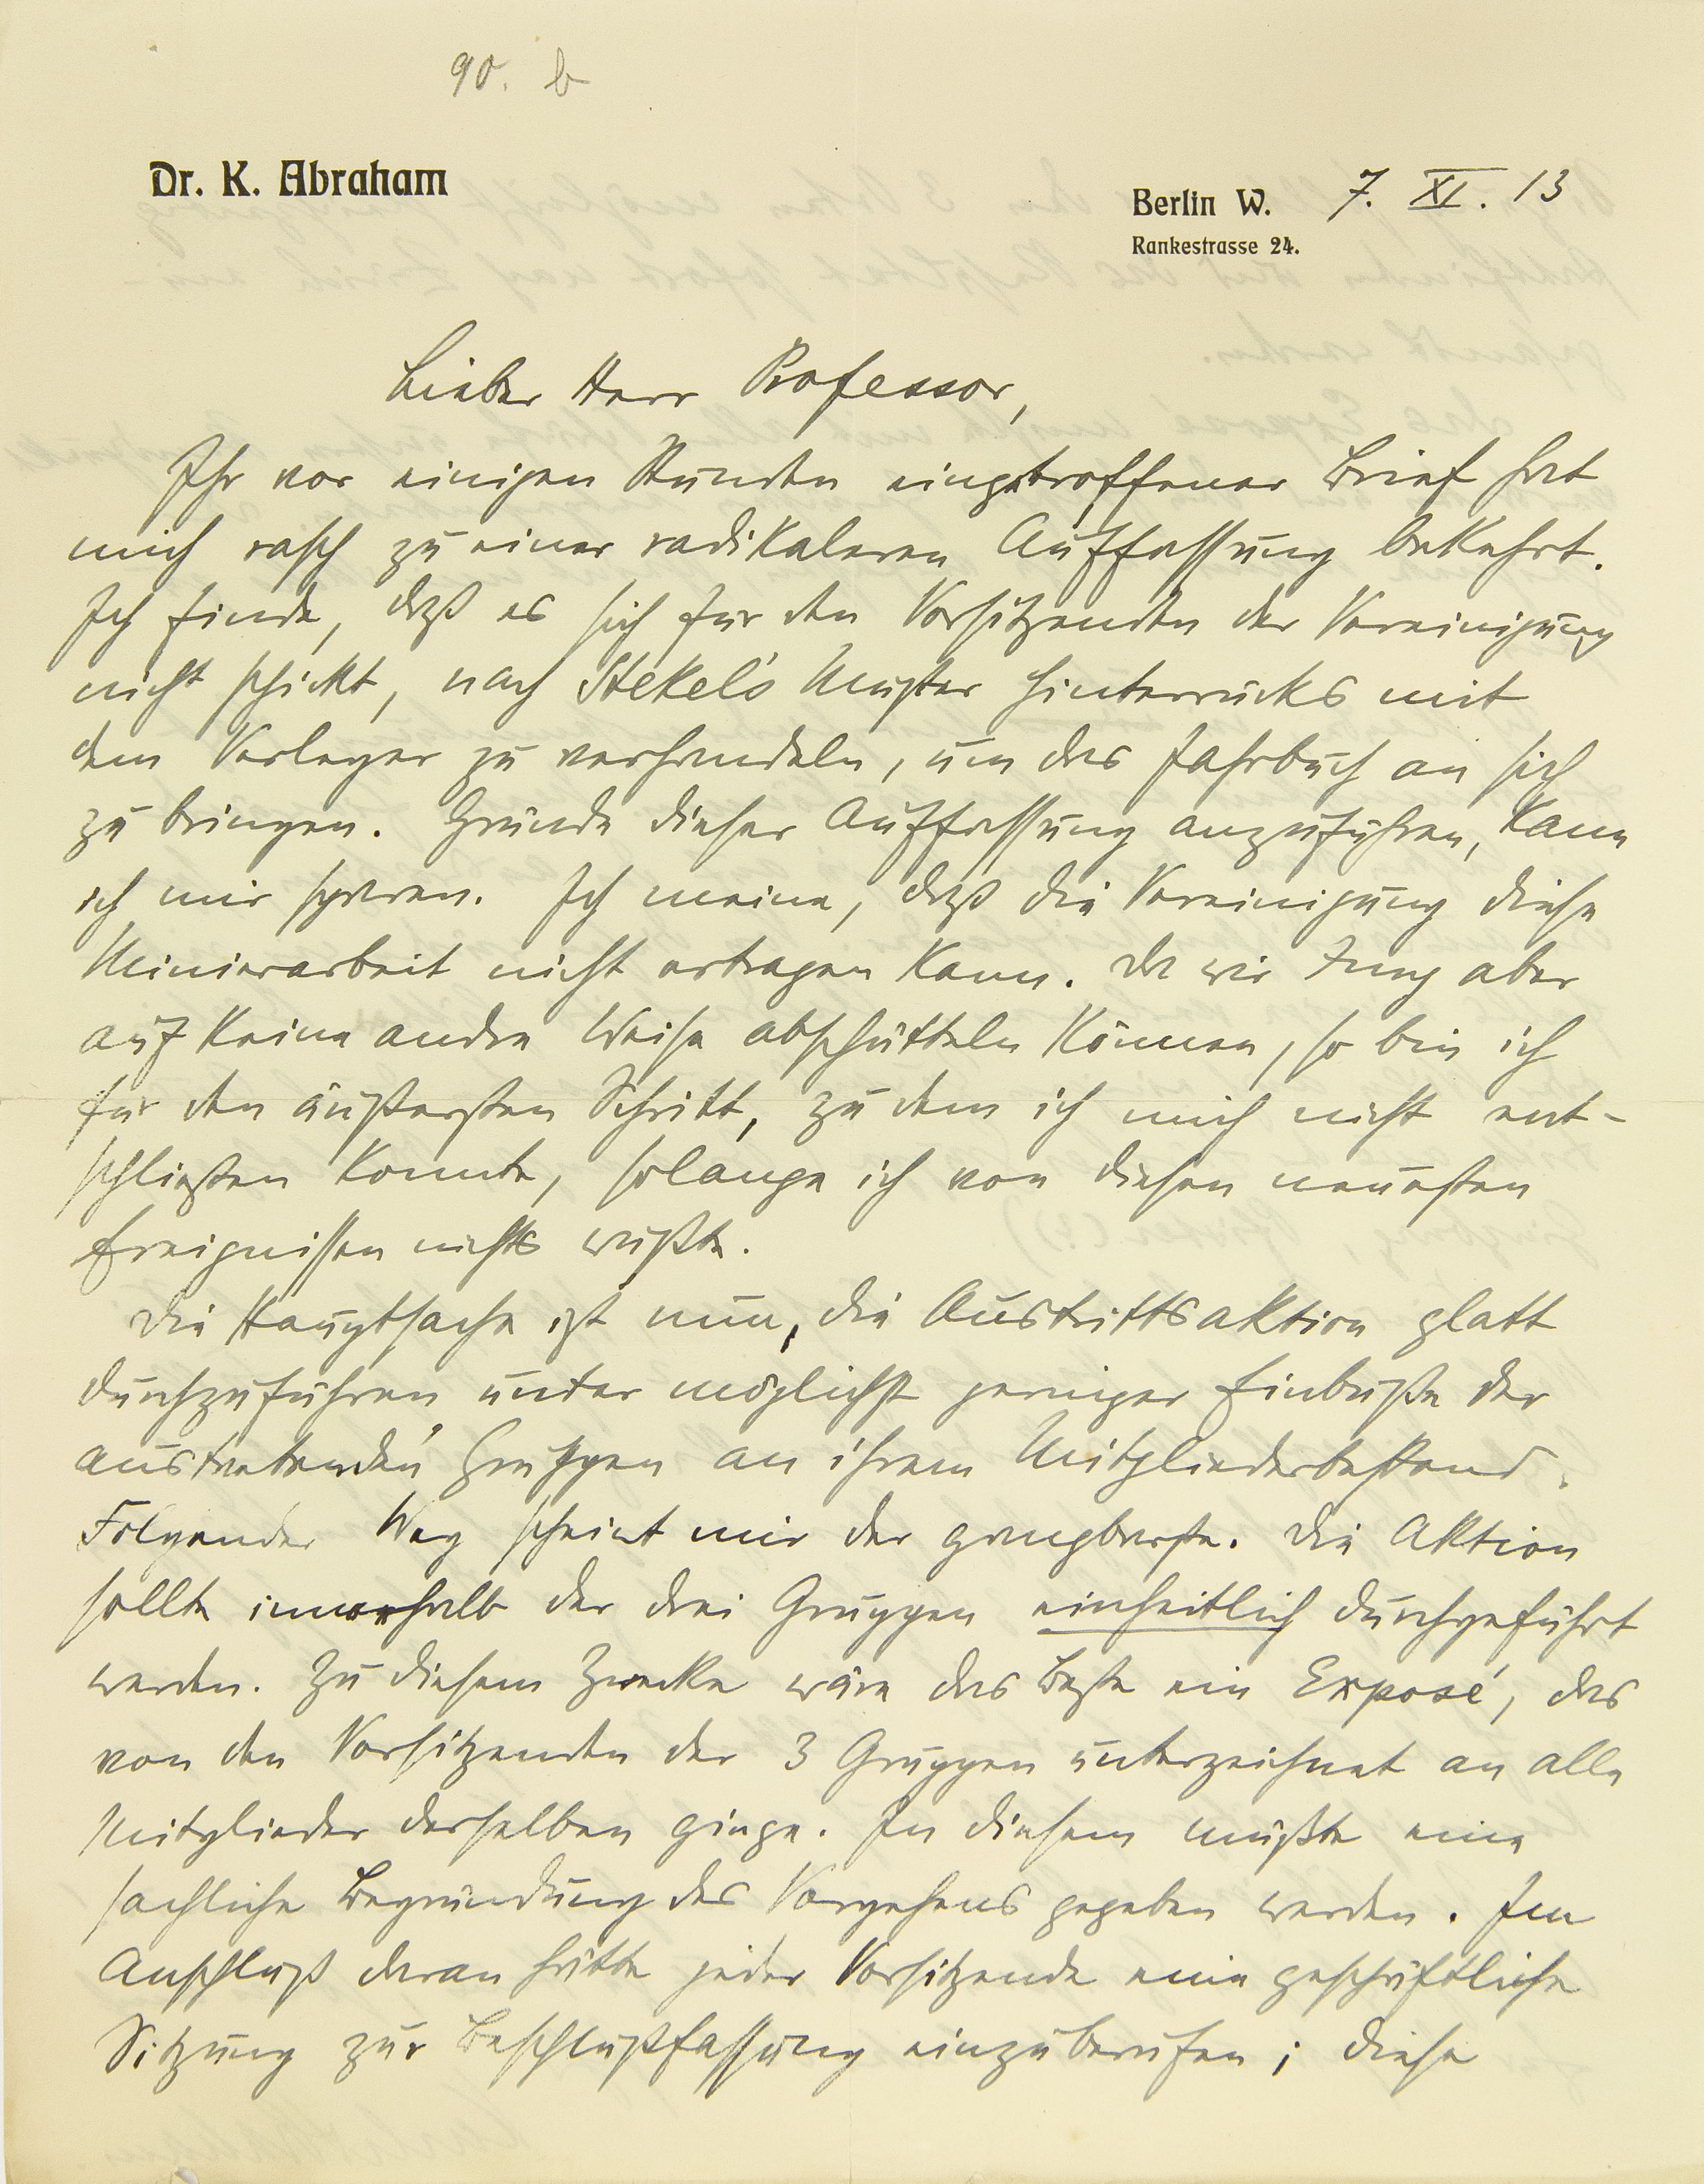 90. b
Dr. K. Abraham
Berlin W. 7. XI. 13
Rankestrasse 24.
Lieber Herr Professor,
Ihr vor einigen Stunden eingetroffener Brief hat
mich rasch zu einer radikaleren Auffassung bekehrt.
Ich finde, daß es sich für den Vorsitzenden der Vereinigung
nicht schickt, nach Stekel's Muster hinterrücks mit
dem Verleger zu verhandeln, um das Jahrbuch an sich
zu bringen. Gründe dieser Auffassung anzuführen, kann
ich mir sparen. Ich meine, daß die Vereinigung diese
Minierarbeit nicht ertragen kann. Da wir Jung aber
auf keine andre Weise abschütteln können, so bin ich
für den äußersten Schritt, zu dem ich mich nicht ent-
schließen konnte, solange ich von diesen neuesten
Ereignissen nichts wußte.
Die Hauptsache ist nun, die Austrittsaktion glatt
durchzuführen unter möglichst geringer Einbuße der
austretenden Gruppen an ihrem Mitgliederbestand.
Folgender Weg scheint mir der gangbarste. Die Aktion
sollte innerhalb der drei Gruppen einheitlich durchgeführt
werden. Zu diesem Zwecke wäre das Beste ein Exposé, das
von den Vorsitzenden der 3 Gruppen unterzeichnet an alle
Mitglieder derselben ginge. In diesem müßte eine
sachliche Begründung des Vorgehens gegeben werden. Im
Anschluß daran hätte jeder Vorsitzende eine geschäftliche
Sitzung zur Beschlußfassung einzuberufen; diese